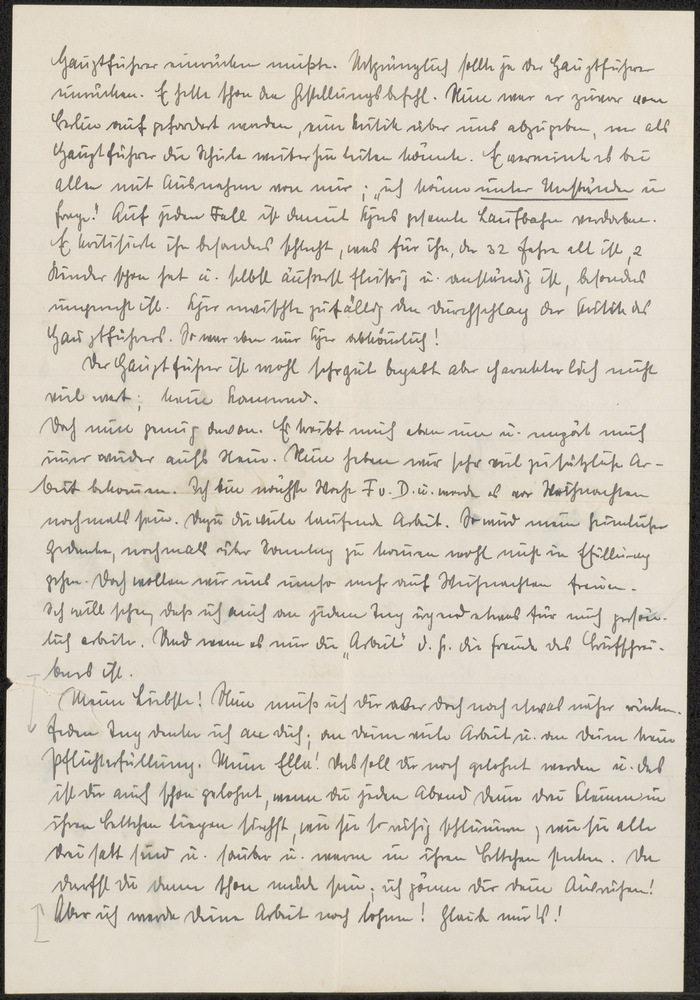 Hauptführer einrücken mußte. Ursprünglich sollte ja der Hauptführer
einrücken. Er hatte schon den Gestellungsbefehl. Nun war er zuvor von
Berlin aufgefordert worden, eine Kritik über uns abzugeben, wer als
Hauptführer die Schule weiterhin leiten könnte. Er verneint es bei
allen mit Ausnahme von mir; „ich käme unter Umständen in
Frage! Auf jeden Fall ist damit Hjers gesamte Laufbahn verdorben.
Er kritisierte ihn besonders schlecht, was für ihn, der 32 Jahre alt ist, 2
Kinder schon hat u. selbst äußerst fleißig u. anständig ist, besonders
ungerecht ist. Hjer erwischte zufällig den Durchschlag der Kritik des
Hauptführers. Er war eben nur Hjer abkömmlich!
Der Hauptführer ist wohl sehr gut begabt aber charakterlich nicht
viel wert; keine Kamerad.
Doch nun genug davon. Es treibt mich eben um u. empört mich
immer wieder aufs Neue. Nun haben wir sehr viel zusätzliche Ar-
beit bekommen. Ich bin nächste Woche F. v. D. u. werde es vor Weihnachten
nochmals sein. Dazu die viele laufende Arbeit. So wird mein heimlicher
Gedanke, nochmals über Sonntag zu kommen wohl nicht in Erfüllung
gehen. Doch wollen wir uns umso mehr auf Weihnachten freuen.
Ich will sehen, daß ich auch an jedem Tag irgend etwas für mich persön-
lich arbeite. Und wenn es nur die „Arbeit" d. h. die Freude des Briefschrei-
bens ist.
Meine Liebste! Nun muß ich Dir aber doch noch etwas näher rücken.
Jeden Tag denke ich an Dich; an Deine viele Arbeit u. an Deine treue
Pflichterfüllung. Meine Ella! Das soll Dir noch gelohnt werden u. das
ist Dir auch schon gelohnt, wenn Du jeden Abend Deine drei Kleinen in
ihren Bettchen liegen siehst, wie sie so ruhig schlummern, wie sie alle
drei satt sind u. sauber u. warm in ihren Bettchen stecken. Da
darfst Du dann schon müde sein; ich gönne Dir Dein Ausruhen!
Aber ich werde Deine Arbeit noch lohnen! Glaub mir's!